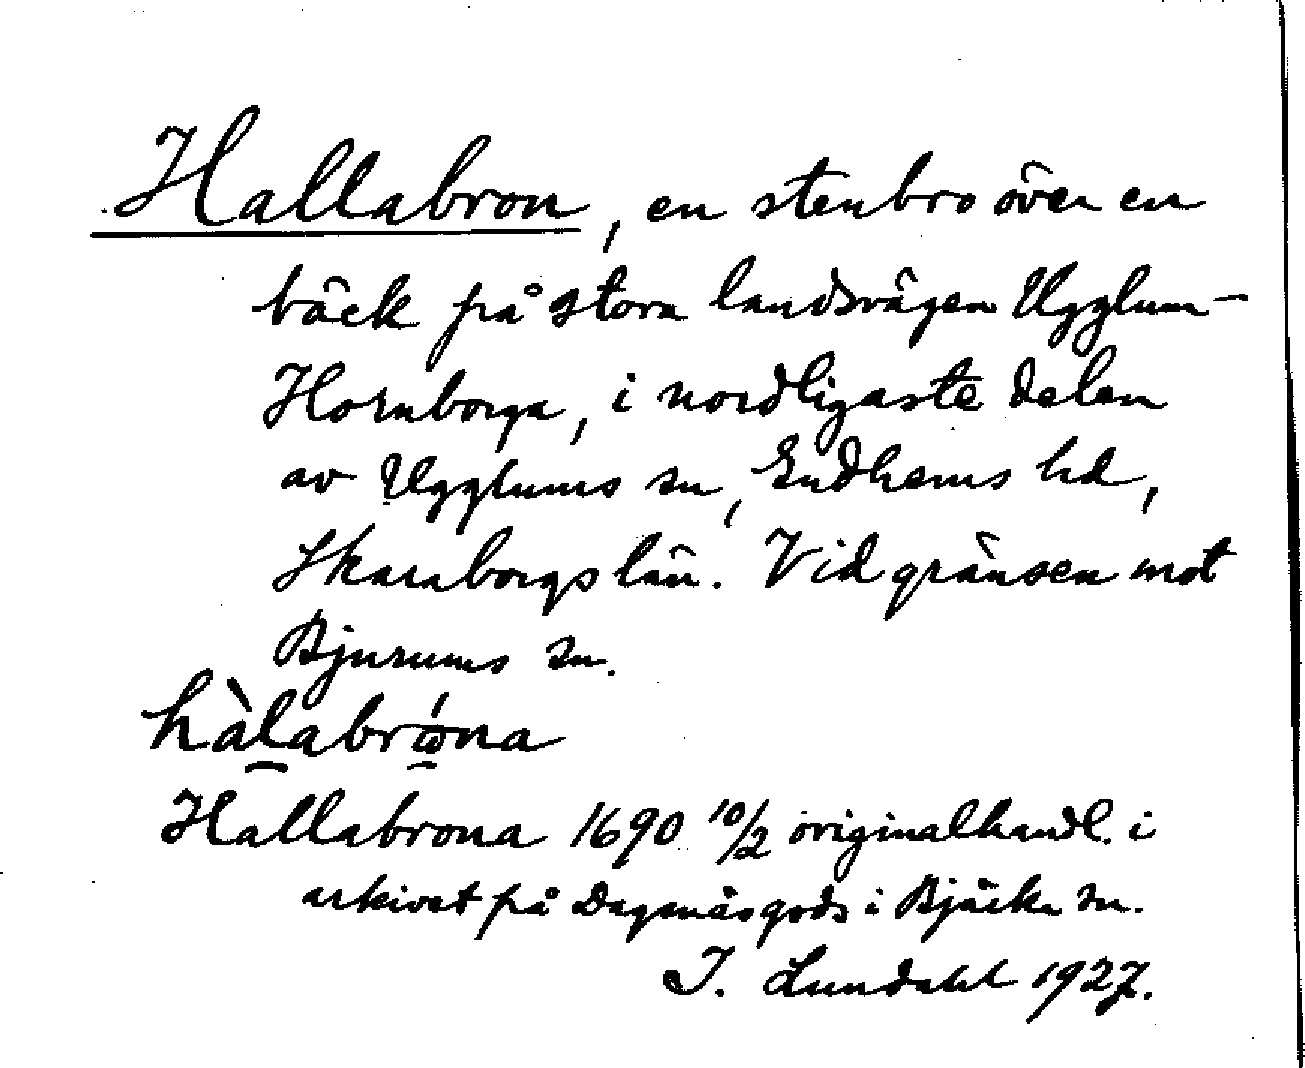 Hallabron, en stenbro över en
bäck på stora landsvägen Ugglum-
Hornborga, i nordligaste delen
av Ugglums sn, Gudhems hd,
Skaraborgs län. Vid gränsen mot
Bjurums sn.
hàlabrǿna
Hallabrona 1690 10/2 originalhandl. i
arkivet på Dagsnäs gods i Bjärka sn.
I. Lundahl 1927.